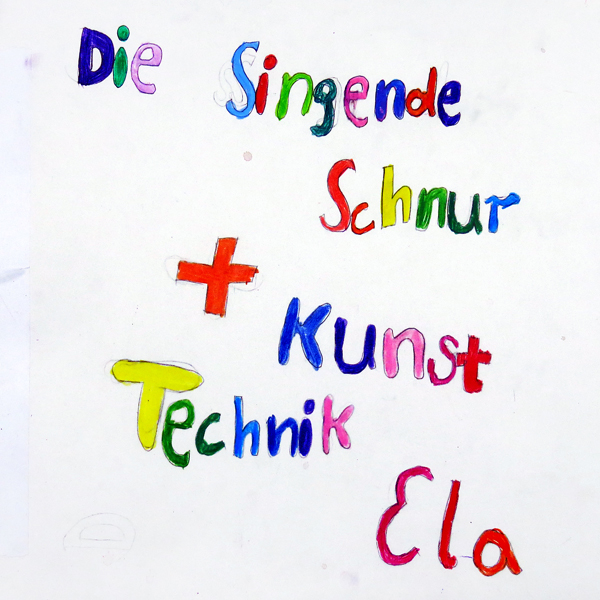 Die Singende
Schnur
+
Kunst
Technik
Ela